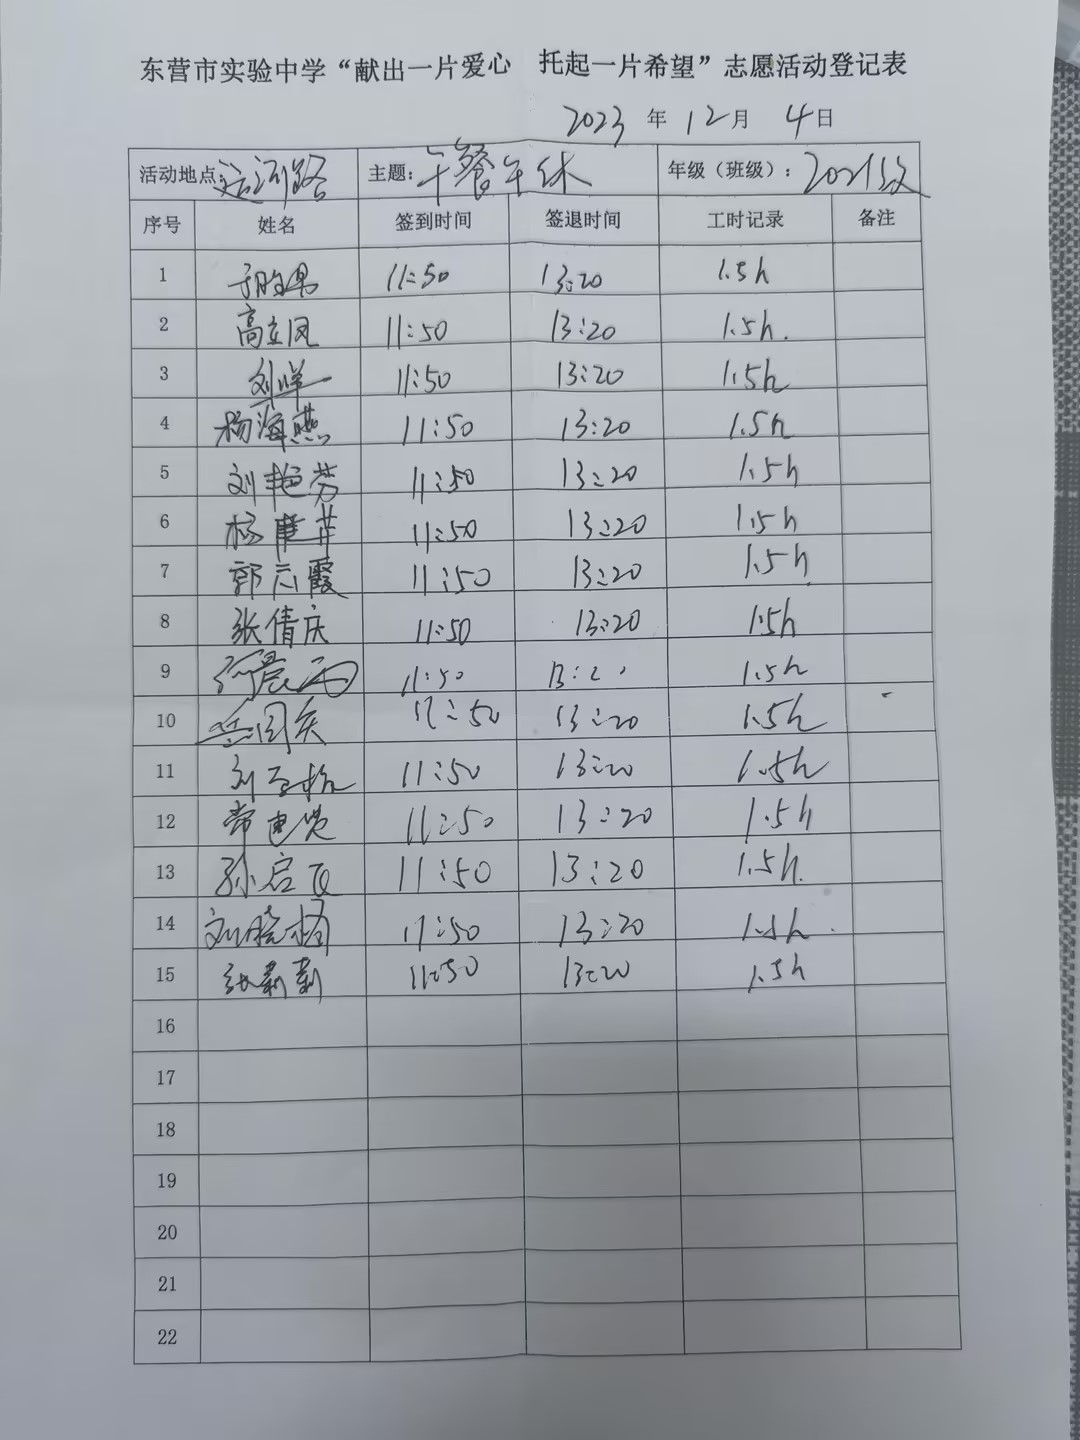 东营市实验中学“献出一片爱心 托起一片希望”志愿活动登记表
2023 年 12 月 4 日
活动地点:运河路 主题:午餐午休 年级(班级):2021级
序号 姓名 签到时间 签退时间 工时记录 备注
1 11:50 13:20 1.5h
2 高立凤 11:50 13:20 1.5h.
3 刘洋 11:50 13:20 1.5h
4 杨海燕 11:50 13:20 1.5h
5 刘艳芳 11:50 13:20 1.5h
6 11:50 13:20 1.5h
7 郭云霞 11:50 13:20 1.5h
8 张倩庆 11:50 13:20 1.5h
9 11:50 13:2 1.5h
10 11:50 13:20 1.5h
11 刘 11:50 13:20 1.5h
12 11:50 13:20 1.5h
13 孙启 11:50 13:20 1.5h.
14 刘晓 11:50 13:20 1.5h.
15 张莉莉 11:50 13:20 1.5h
16
17
18
19
20
21
22